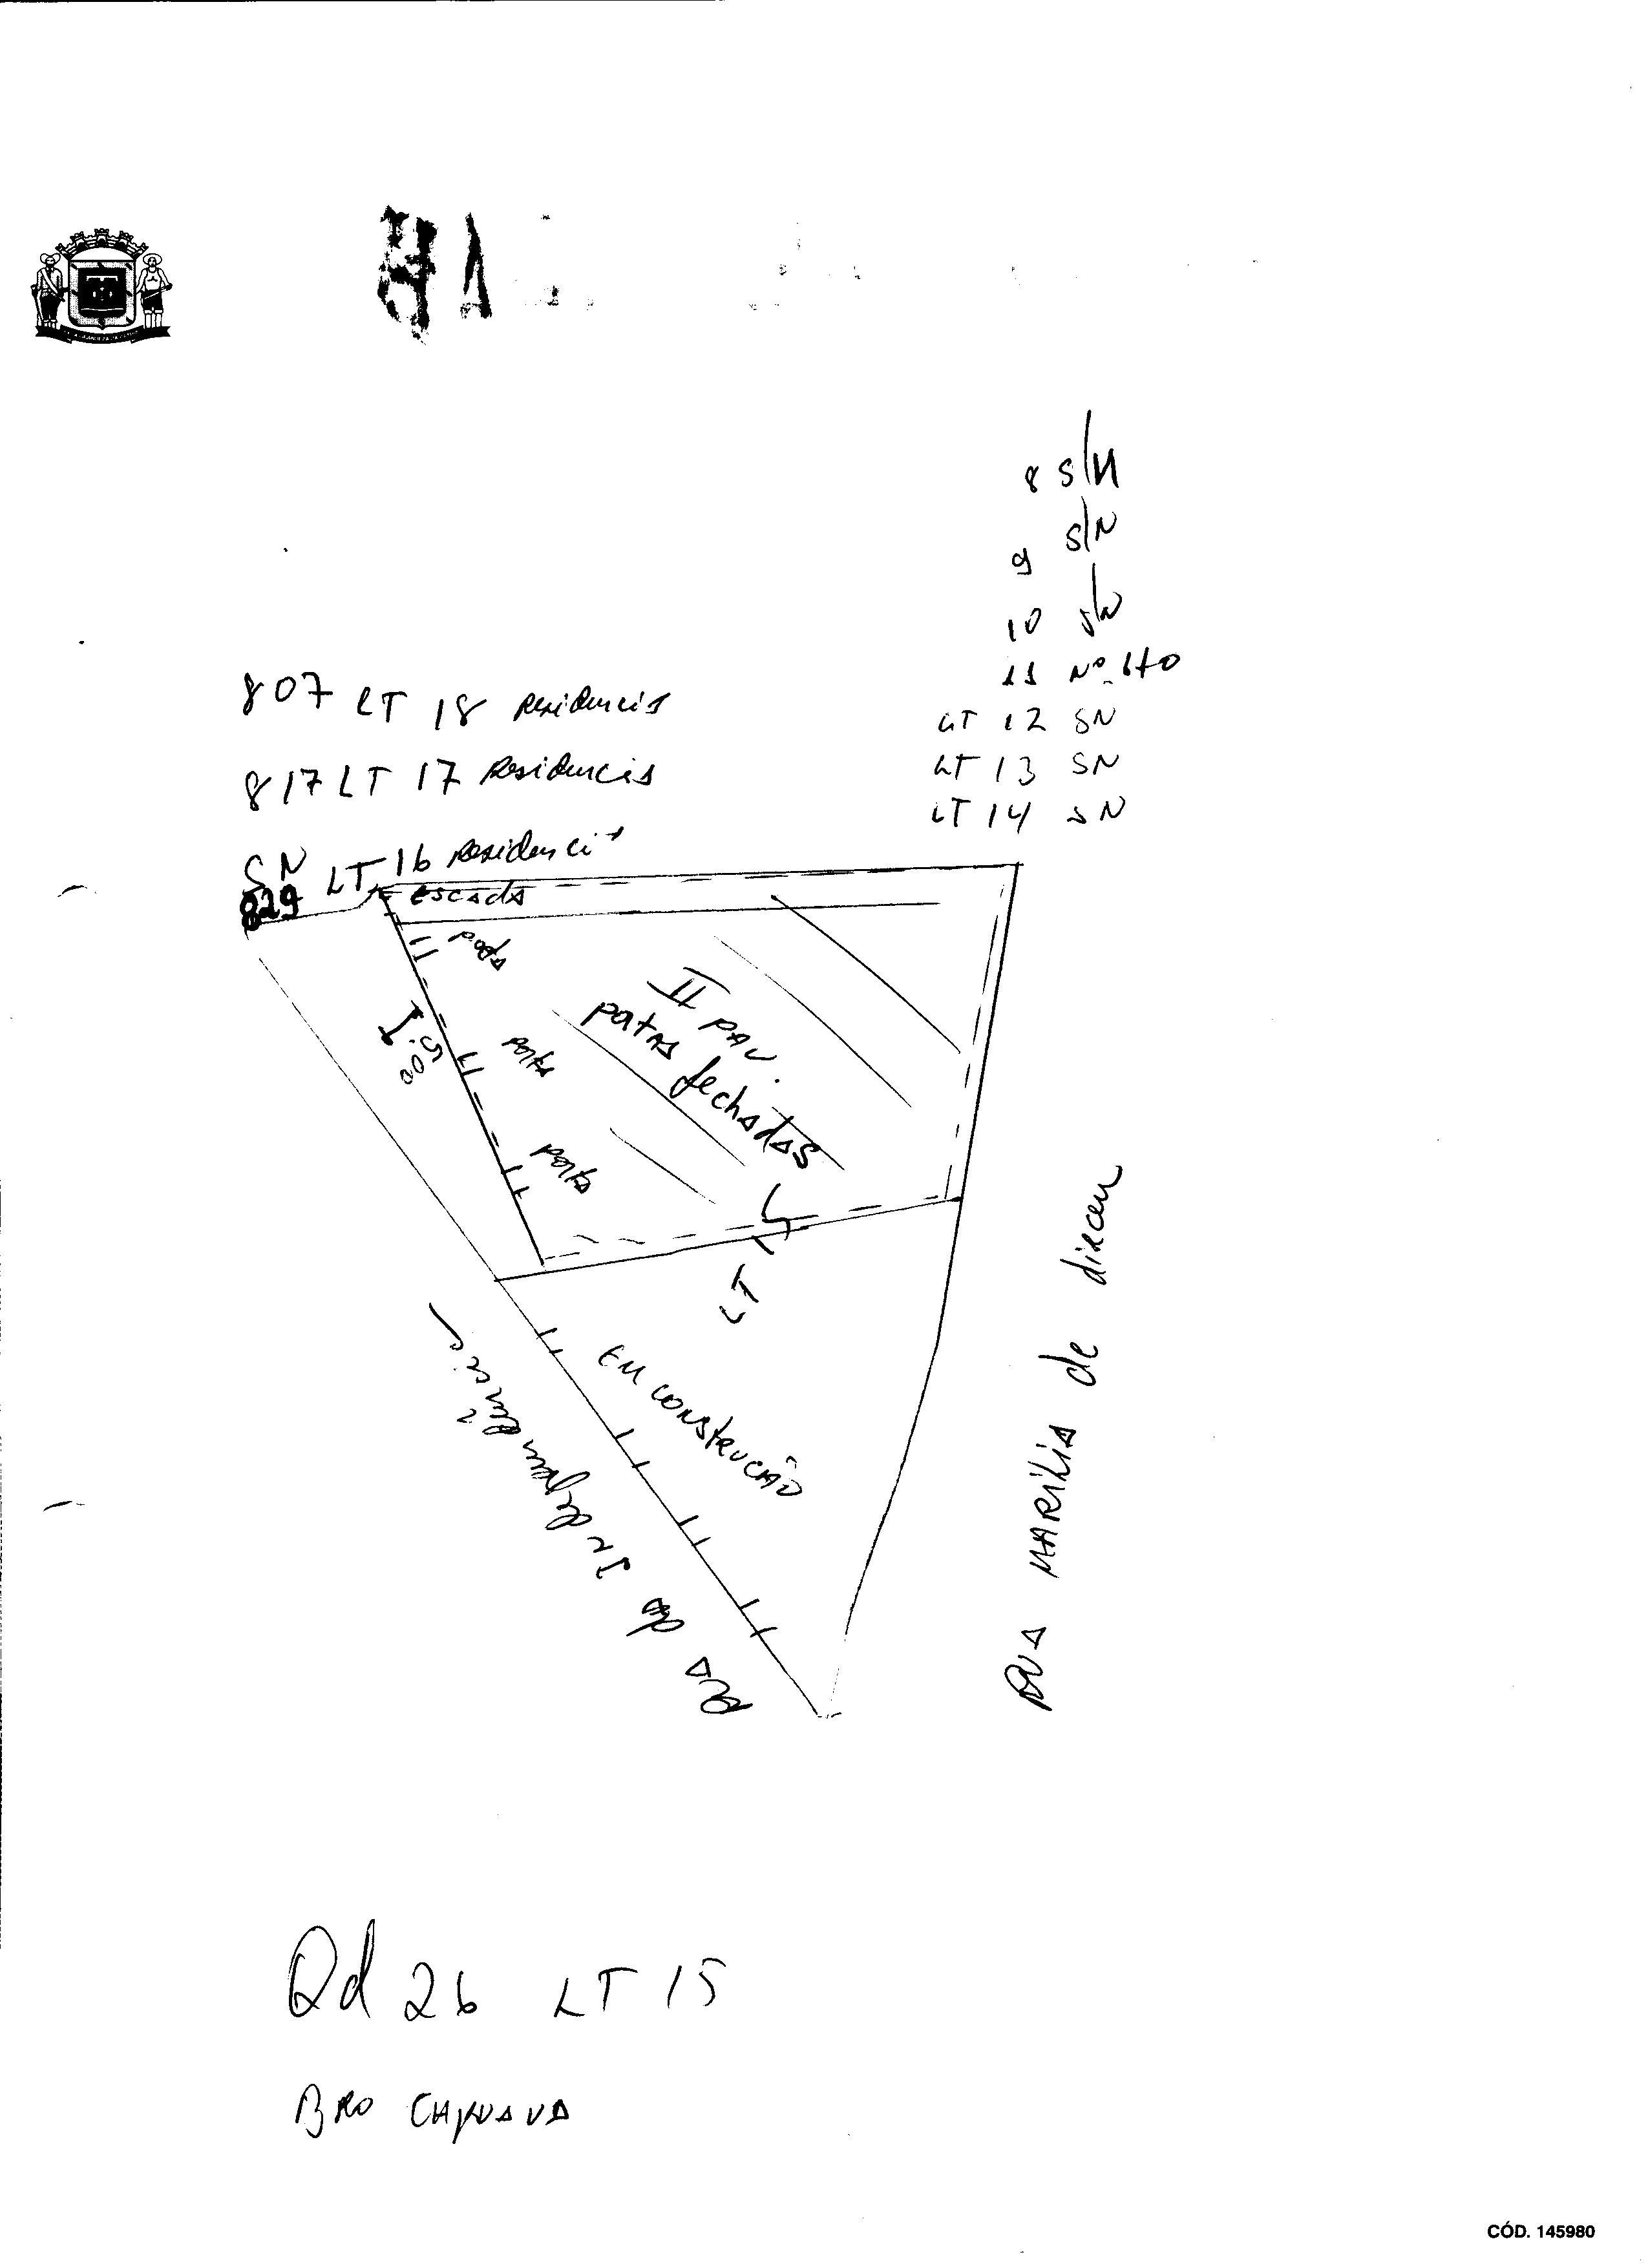 8 S/N
9 S/N
10 S/N
11 Nº
LT 12 SN
LT 13 SN
LT 14 SN
807 LT 18 Residencia
817 LT 17 Residencia
SN LT 16 Residencia
829
escada
porta
II PAV.
portas fechadas
5.00
porta
porta
LT 15
EM CONSTRUCÃO
Rua da Independência
RUA MARILIA de dirceu
Qd 26 LT 15
BRO CAPUAVA
CÓD. 145980